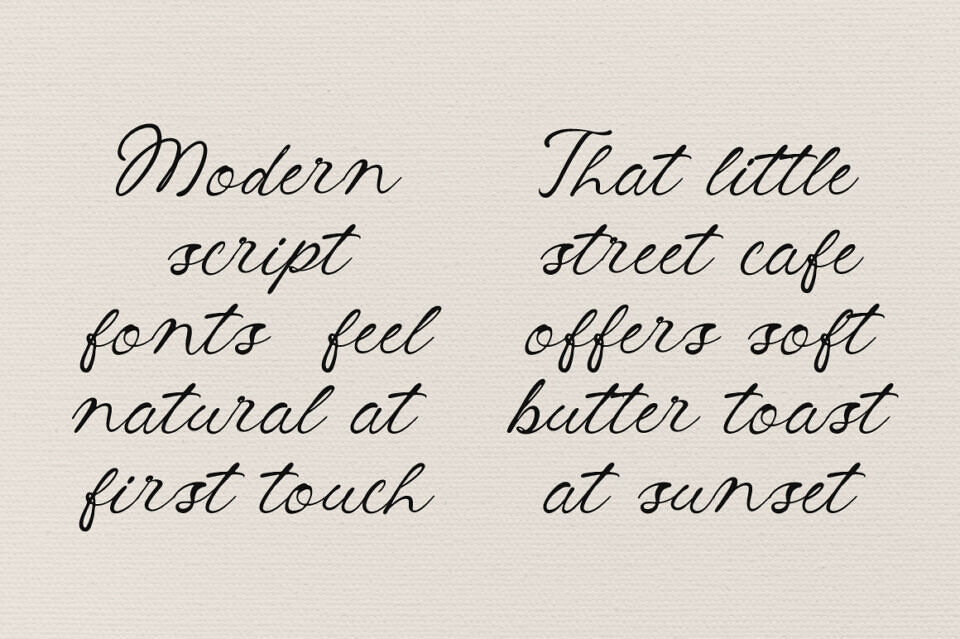 Modern
script
fonts feel
natural at
first touch
That little
street cafe
offers soft
butter toast
at sunset